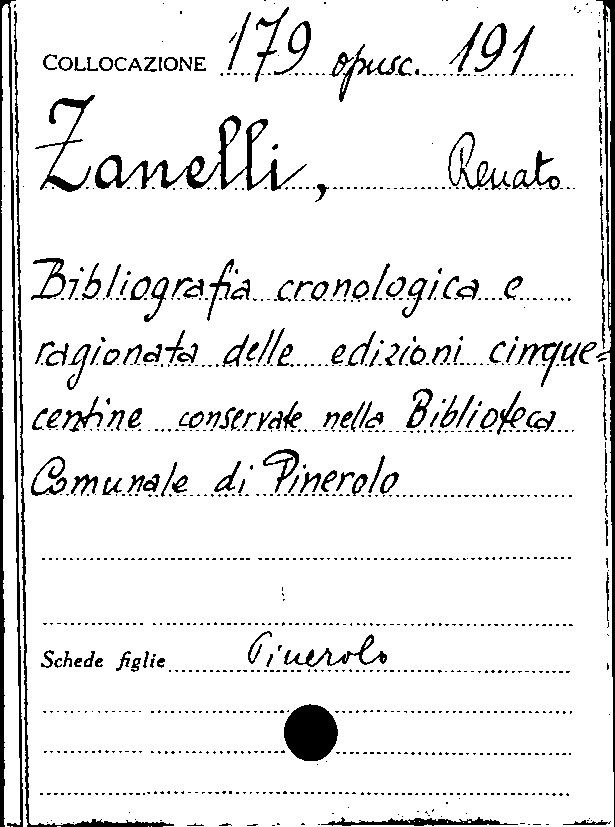 COLLOCAZIONE 179 opusc. 191
Zanelli, Renato
Bibliografia cronologica e
ragionata delle edizioni cinque=
centine conservate nella Biblioteca
Comunale di Pinerolo
Schede figlie Pinerolo